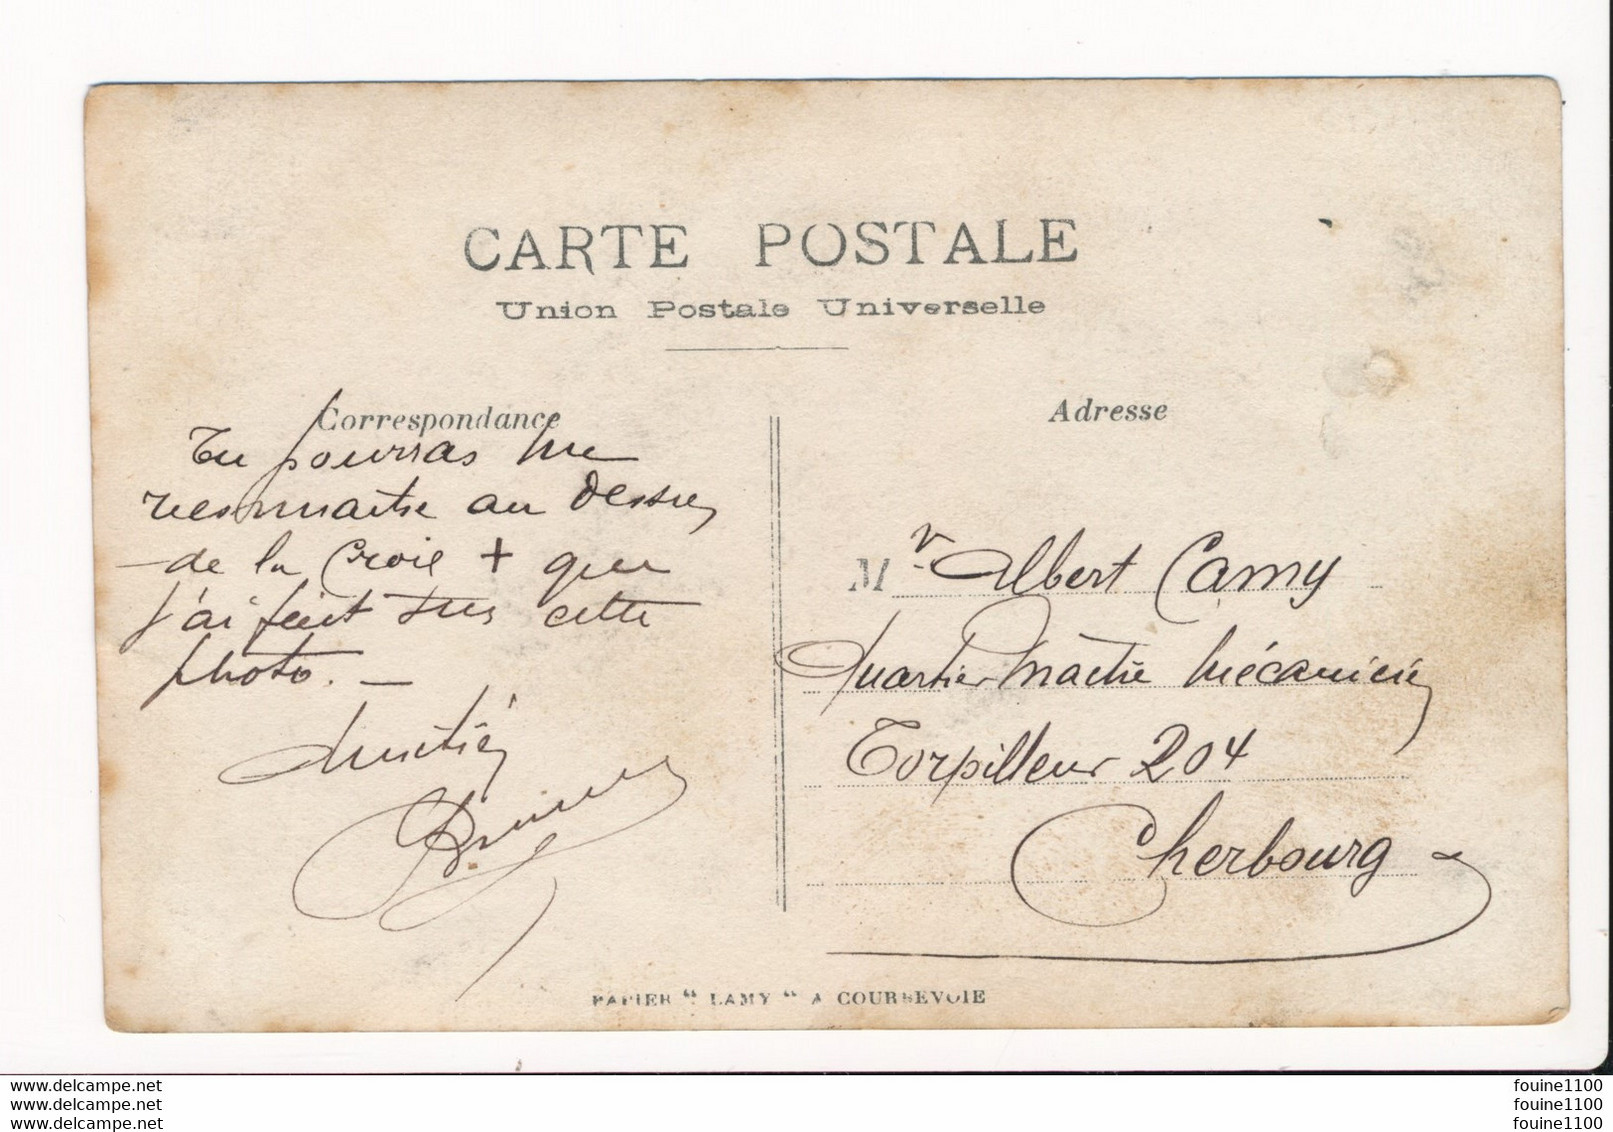 CARTE POSTALE
Union Postale Universelle
Correspondance
Tu pourras me
reconnaitre au dessus
de la Croix + que
j'ai fait sur cette
photo. —
Amitiés
Adresse
Mr Albert Camy
Quartier Maître Mécanicien
Torpilleur 204
Cherbourg
PAPIER "LAMY" A COURBEVOIE
www.delcampe.net
www.delcampe.net
www.delcampe.net
fouine1100
fouine1100
fouine1100